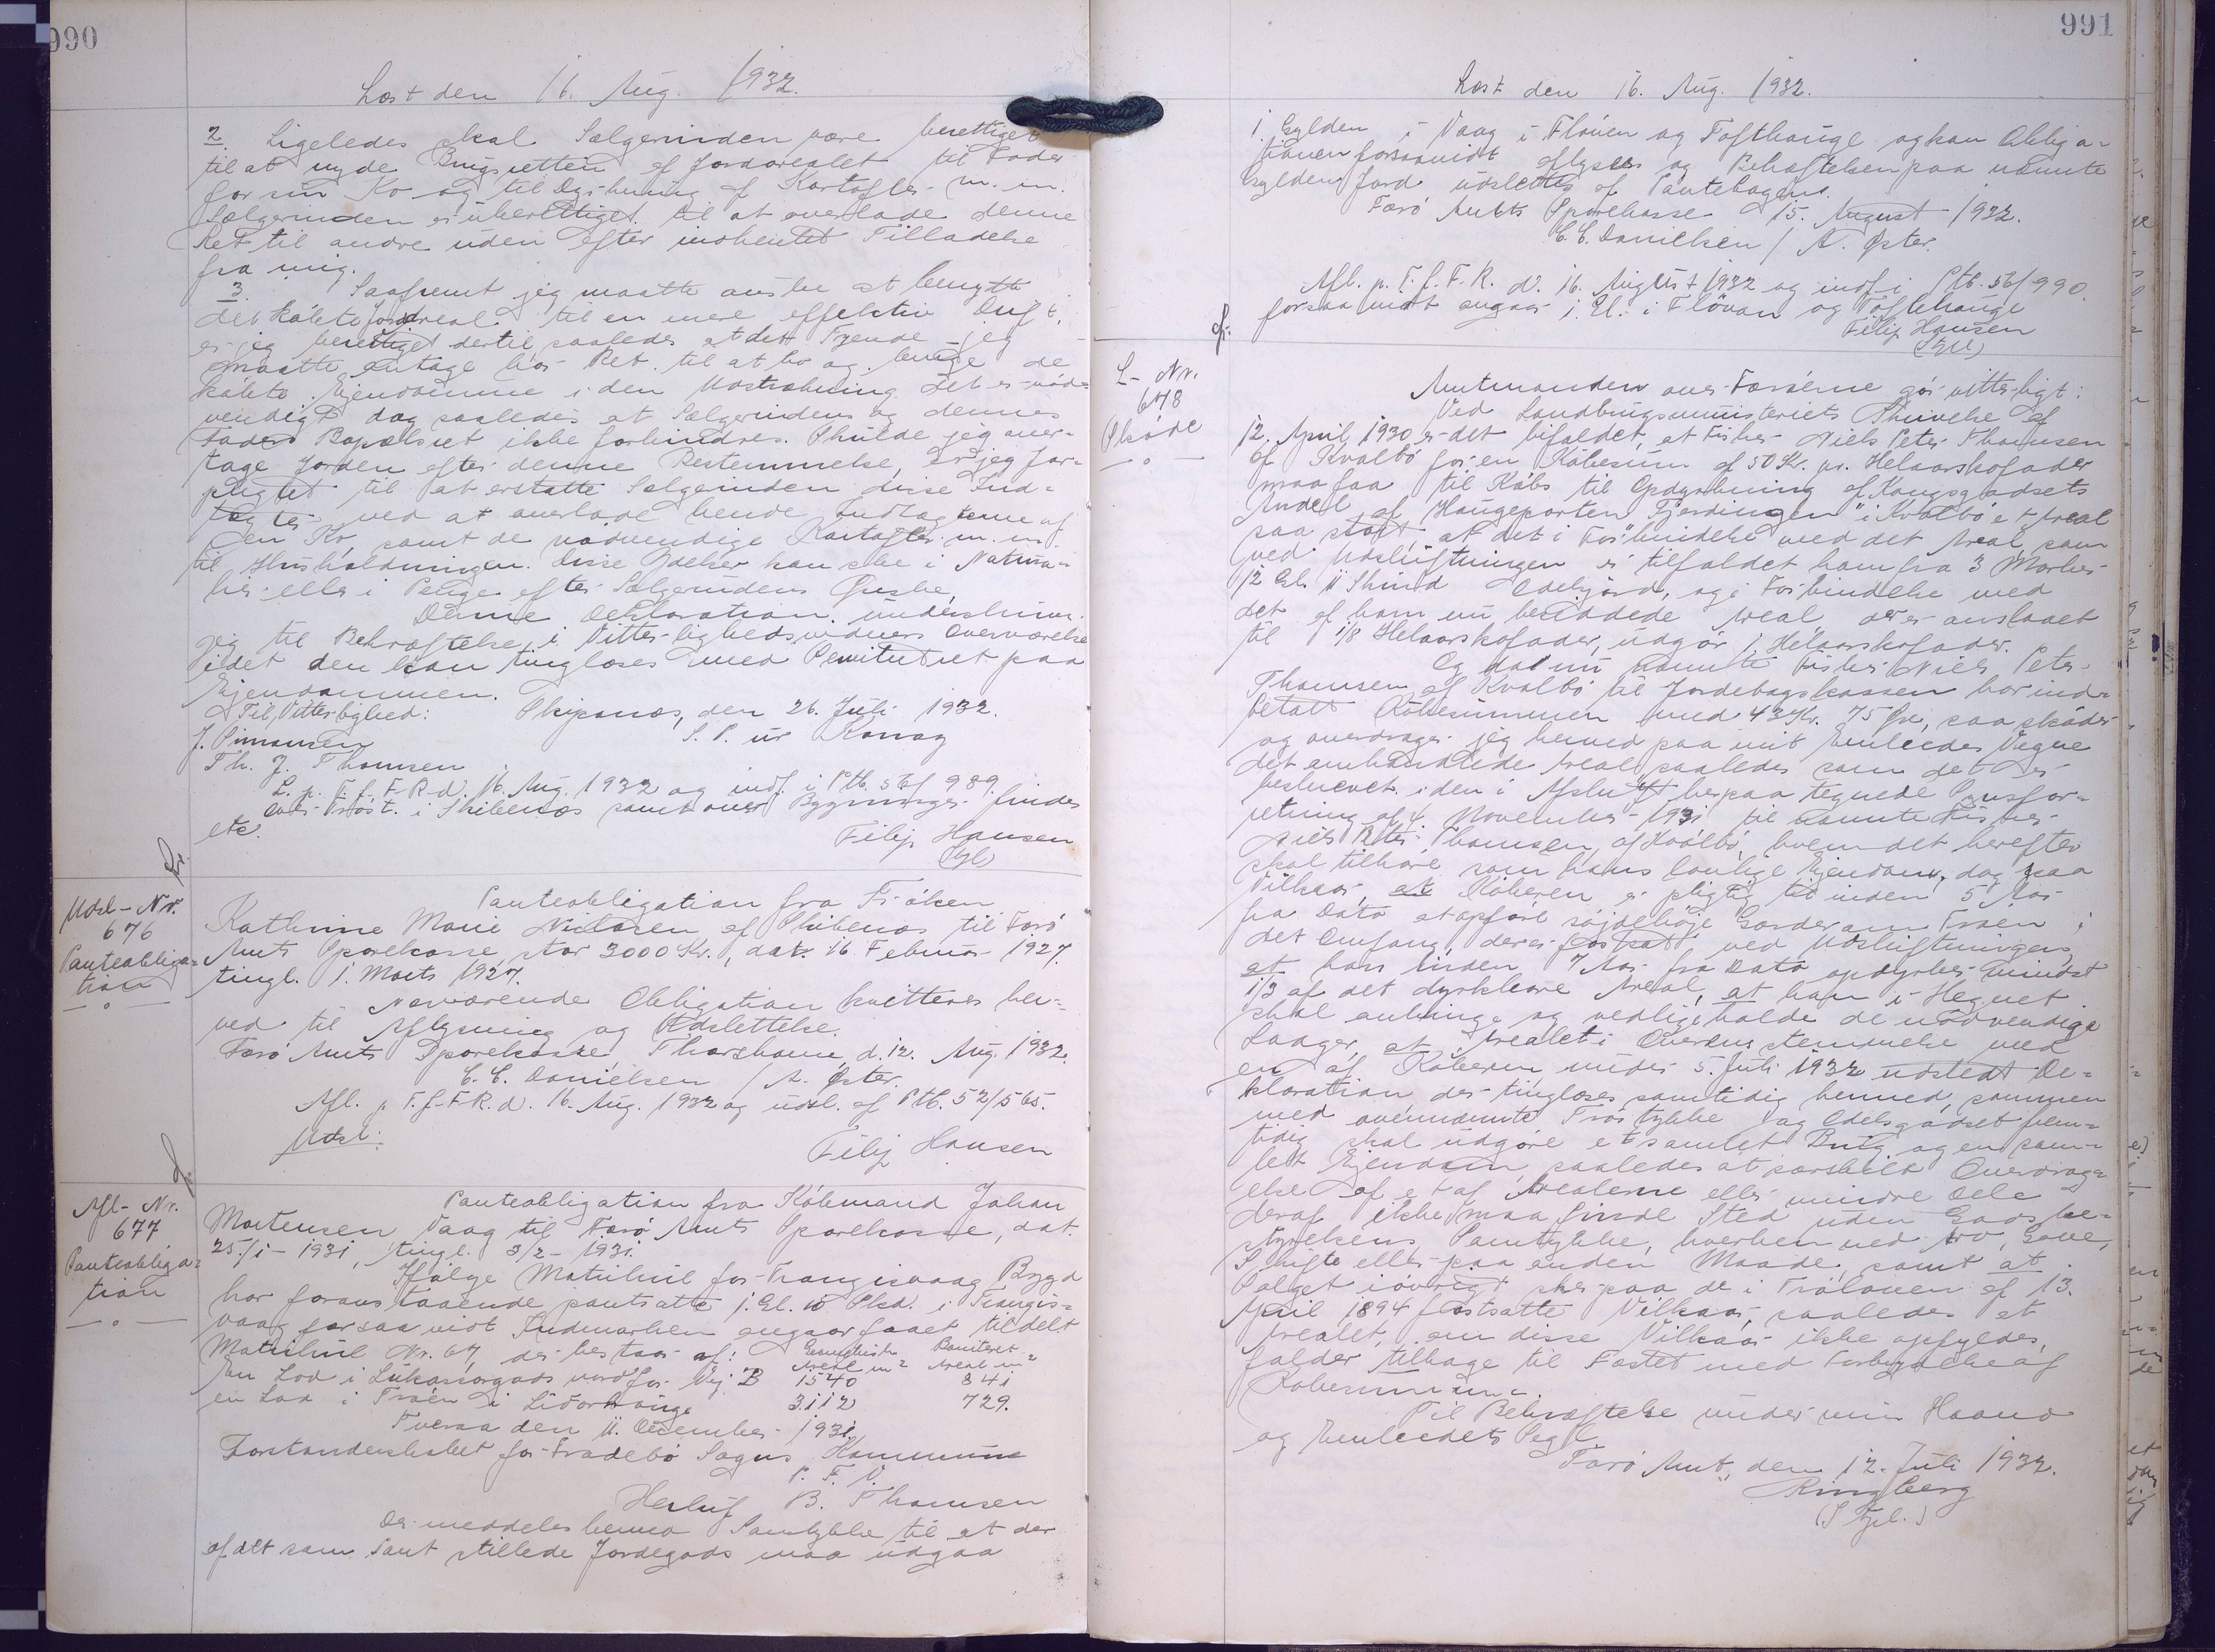 990
Læst den 16. Aug. 1932.
2. Ligeledes skal Sælgerinden være berettiget
til at nyde Brugsretten af Jordarealet til Foder
for sin Ko og til Dyrkning af Kartofler m. m.
Sælgerinden er uberettiget til at overlade denne
Ret til andre uden efter indhentet Tilladelse
fra mig.
3. Saafremt jeg maatte ønske at benytte
det købte Jordareal til en mere effektiv Drift,
er jeg berettiget dertil saaledes at det Tyende jeg
maatte antage har Ret til at bo og bruge de
købte Ejendomme i den Udstrækning det er nød-
vendigt dog saaledes at Sælgerindens og dennes
Faders Bopælsret ikke forhindres. Skulde jeg over-
tage Jorden efter denne Bestemmelse, er jeg for-
pligtet til at erstatte Sælgerinden disse Ind-
tægter ved at overlade hende Indtægterne af
en Ko, samt de nødvendige Kartofler m. m.
til Husholdningen. Disse Ydelser kan ske i Natura-
lier eller i Penge efter Sælgerindens Ønske.
Denne Deklaration underskriver
jeg til Bekræftelse i Vitterlighedsvidners Overværelse
idet den kan tinglæses med Servitutret paa
Ejendommen.
Til Vitterlighed: Skipanæs, den 26. Juli 1932.
J. Simonsen S. P. úr Konoy
Th. J. Thomsen
L. p. T. f. F. R. d. 16. Aug. 1932 og indf. i Ptb. 56/989.
Ovs. Trøst. i Skibenæs samt over Bygninger findes
etc. Filip Hansen
(Gl)
Udsl- Nr.
676
Panteobliga-
tion
Panteobligation fra Frøken
Kathrine Marie Niclasen af Skibenæs til Færø
Amts Sparekasse, stor 3000 Kr., dat. 16. Februar 1927
tingl. 1. Marts 1927.
Nærværende Obligation kvitteres her-
ved til Aflysning og Udslettelse.
Færø Amts Sparekasse, Thorshavn, d. 12. Aug. 1932.
C. C. Danielsen / A. Øster.
Afl. p. T. f. F. R. d. 16. Aug. 1932 og udsl. af Ptb. 52/565.
Udsl: Filip Hansen
Afl- Nr.
677
Panteobliga-
tion
Panteobligation fra Købmand Johan
Mortensen Vaag til Færø Amts Sparekasse, dat.
25/1 - 1931, tingl. 3/2 - 1931.
Ifølge Matrikul for Trangisvaag Bygd
har foranstaaende pantsatte 1. Gl. 10 Skd. i Trangis-
vaag forsaavidt Indmarken angaar faaet tildelt
Matrikul Nr. 67, der bestaar af: Geometrisk Boniteret
Areal m² Areal m²
En Lod i Lukassargads nordfor Vej B 1540 841
en Lod i Trøen i Lidarhauge 3112 729.
Tveraa den 11. December 1931.
Forstanderskabet for Frodebø Sogns Kommune
P. F. V.
Herluf B. Thomsen
Der meddeles herved Samtykke til at der
af det som Pant stillede Jordegods maa udgaa
991
Læst den 16. Aug. 1932.
1. Gylden i Vaag i Fløven og Tofthauge og kan Obliga-
tionen forsaavidt aflyses og Behæftelsen paa nævnte
Gylden Jord udslettes af Pantebogen.
Færø Amts Sparekasse 15. August 1932.
C. C. Danielsen / A. Øster.
Afl. p. T. f. F. R. d. 16. August 1932 og indf. i Ptb. 56/990.
forsaavidt angaar 1. Gl. i Fløvan og Toftehauge
Filip Hansen
(Gl)
L- Nr.
678
Skøde
Amtmanden over Færøerne gør vitterligt:
Ved Landbrugsministeriets Skrivelse af
12. April 1930 er det bifaldet, at Fisker Niels Peter Thomsen
af Kvalbø for en Købesum af 50 Kr. pr. Helaarskofoder
maa faa til Købs til Opdyrkning af Kongsgodsets
Andel af Haugeparten "Fjerdingen" i Kvalbø et Areal
saa stort at det i Forbindelse med det Areal, som
ved Udskiftningen er tilfaldet ham fra 3 Marker
12 Gl. 11 Skind Odelsjord, og i Forbindelse med
det af ham nu besiddede Areal der er anslaaet
til 1/8 Helaarskofoder, udgør 1. Helaarskofoder.
Og da nu nævnte Fisker Niels Peter
Thomsen af Kvalbø til Jordebogskassen har ind-
betalt Købesummen med 43 Kr. 75 Øre, saa skøder
og overdrager jeg herved paa mit Embedes Vegne
det omhandlede Areal saaledes som det er
beskrevet i den i Afskrift herpaa tegnede Synsfor-
retning af 4. November 1931 til nævnte Fisker
Niels Peter Thomsen, af Kvalbø, hvem det herefter
skal tilhøre som hans lovlige Ejendom, dog paa
Vilkaar, at Køberen er pligtig til inden 5 Aar
fra Dato at opføre søjdehøje Gærder om Trøen i
det Omfang, der er fastsat ved Udskiftningen,
at han inden 7 Aar fra Dato opdyrker mindst
1/3 af det dyrkbare Areal, at han i Hegnet
skal anbringe og vedligeholde de nødvendige
Laager, at Arealet i Overensstemmelse med
en af Køberen under 5. Juli 1932 udstedt De-
klaration der tinglæses samtidig hermed, sammen
med ovennævnte Trøstykke og Odelsgodset frem-
tidig skal udgøre et samlet Brug og en sam-
let Ejendom saaledes at særskilt Overdrag-
else af et af Arealerne eller mindre Dele
deraf ikke maa finde Sted uden Godsbe-
styrelsens Samtykke, hverken ved Arv, Gave,
Skifte eller paa anden Maade, samt at
Salget iøvrigt sker paa de i Trøloven af 13.
April 1894 fastsatte Vilkaar, saaledes at
Arealet, om disse Vilkaar ikke opfyldes,
falder tilbage til Fæstet med Fortabelse af
Købesummen.
Til Bekræftelse under min Haand
og Embedets Segl.
Færø Amt, den 12. Juli 1932.
Ringberg
(Sgl.)